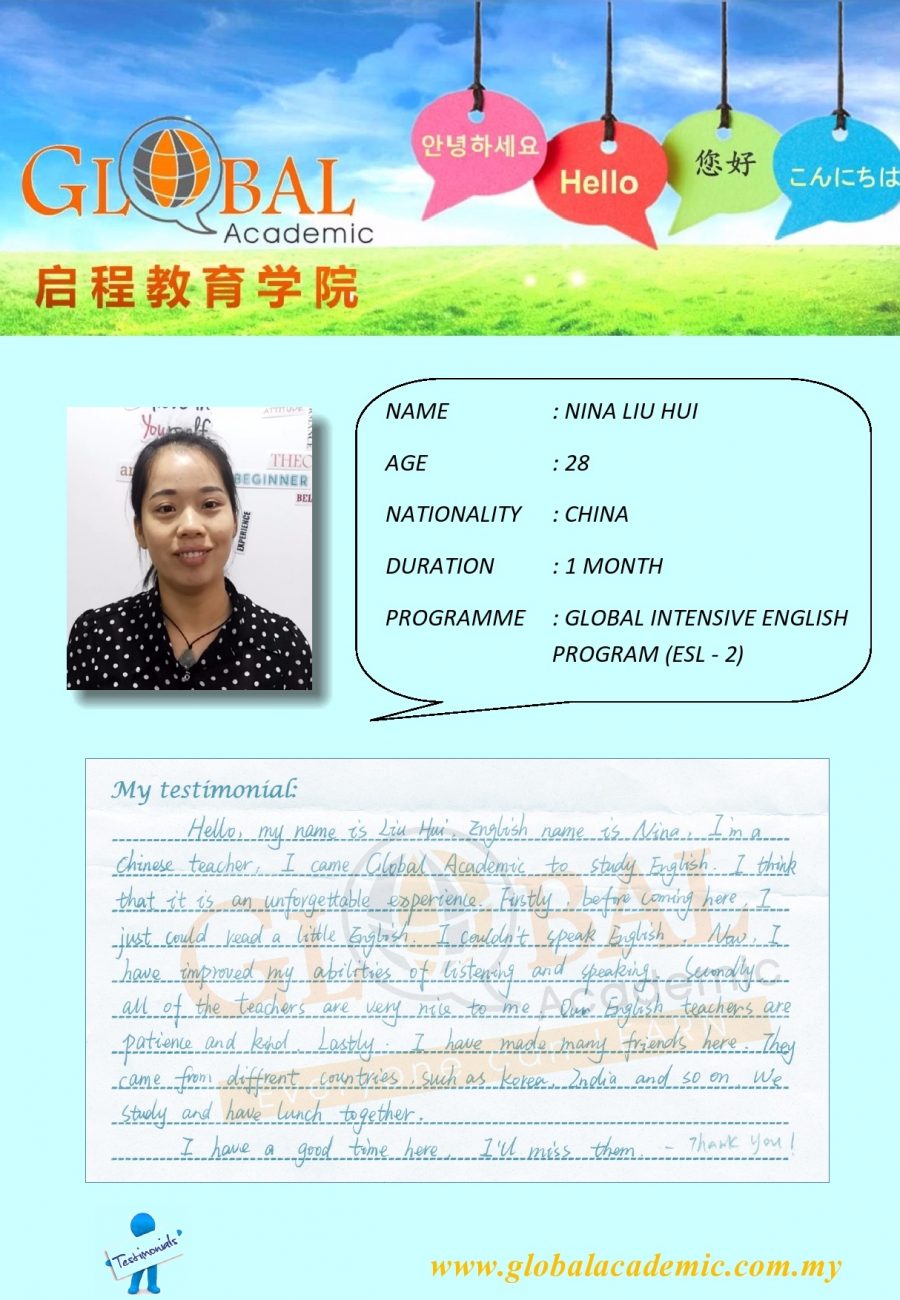 GLOBAL
Academic
启程教育学院
안녕하세요
Hello
您好
こんにちは
Yourself
ATTITUDE
THEO
BEGINNER
BEL
EXPERIENCE
NAME : NINA LIU HUI
AGE : 28
NATIONALITY : CHINA
DURATION : 1 MONTH
PROGRAMME : GLOBAL INTENSIVE ENGLISH
PROGRAM (ESL - 2)
My testimonial:
Hello, my name is Liu Hui. English name is Nina. I'm a
Chinese teacher. I came Global Academic to study English. I think
that it is an unforgettable experience. Firstly, before coming here, I
just could read a little English. I couldn't speak English. Now, I
have improved my abilities of listening and speaking. Secondly
all of the teachers are very nice to me. Our English teachers are
patience and kind. Lastly. I have made many friends here. They
came from diffrent countries, such as Korea, India and so on. We
study and have lunch together.
I have a good time here. I'll miss them. - Thank you!
GLOBAL
Academic
Everyone Can LEARN
Testimonials
www.globalacademic.com.my